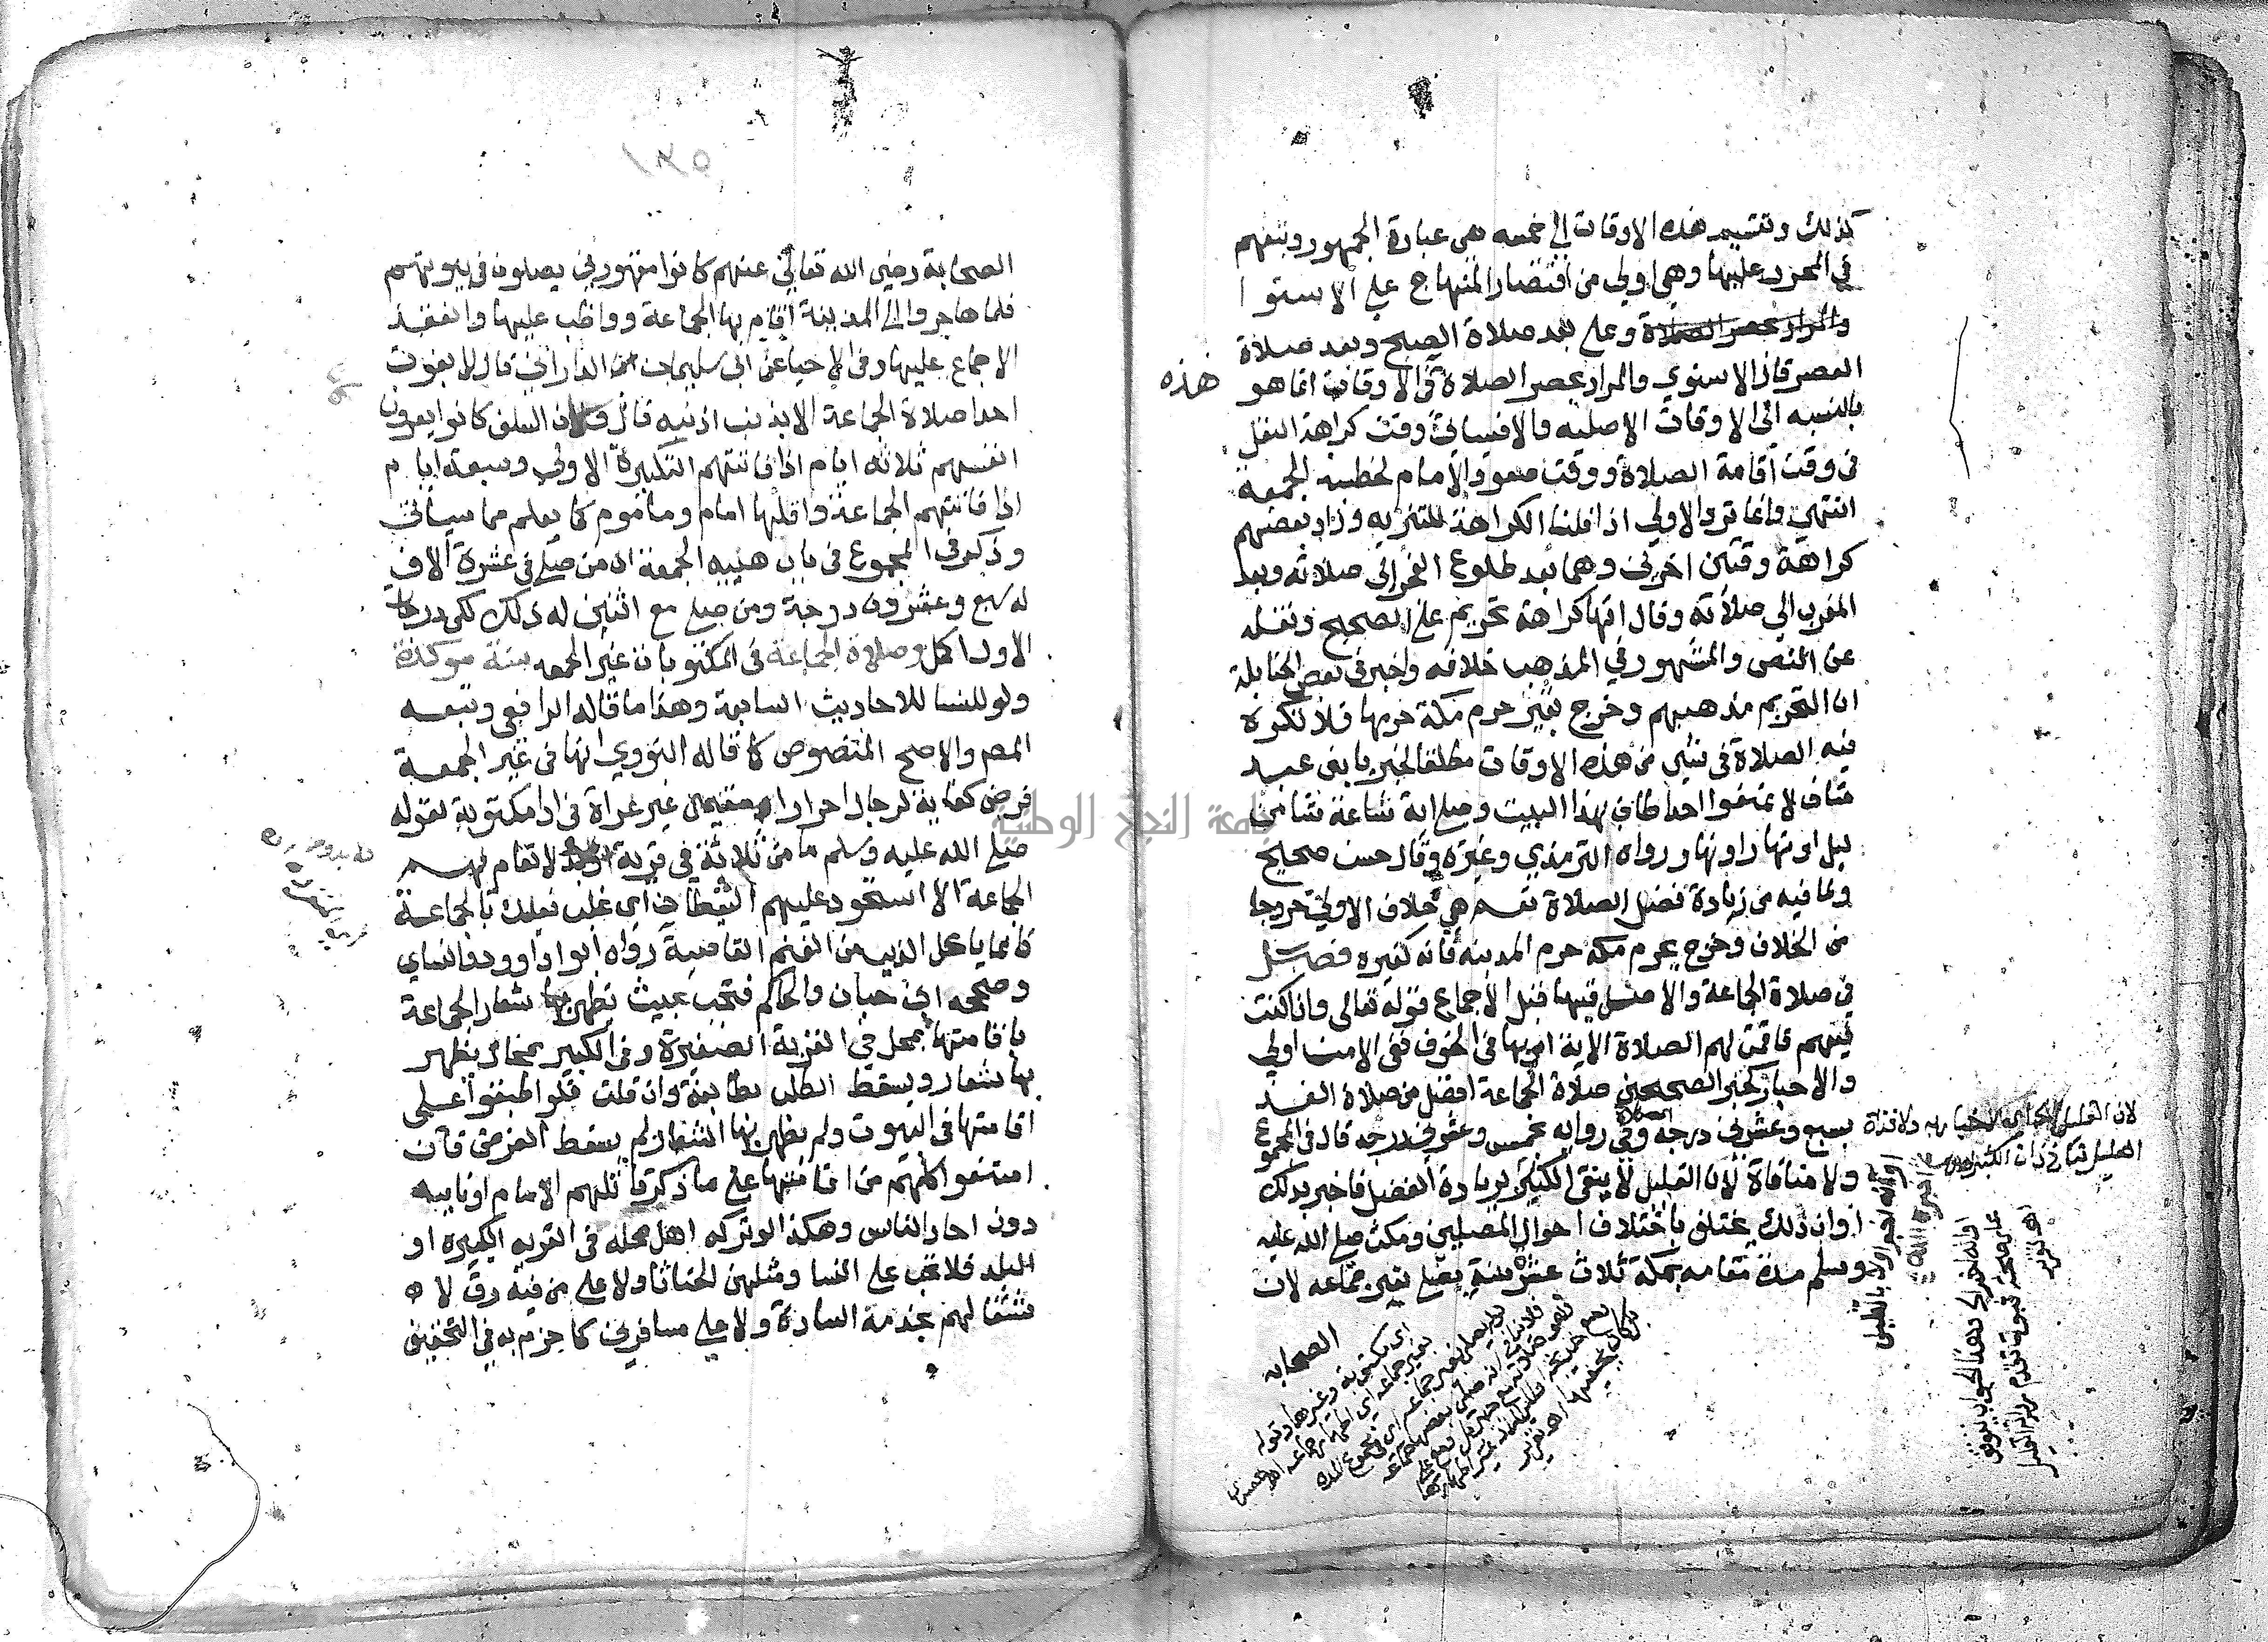 كذلك وتقسيم هذه الاوقات الى خمسه هى عبارة الجمهور وتبعهم
في المحرر عليها وهي اولى من اقتصار المنهاج على الاستوا
والمراد بحصر الصلاة وعلى بعد صلاة الصبح وبعد صلاة
العصر قال الاسنوي والمراد بحصر الصلاة في الاوقات انما هو
هذه
بالنسبه الى الاوقات الاصليه والا فسياتي وقت كراهة النفل
في وقت اقامة الصلاة ووقت صعود الامام لخطبه الجمعة
انتهى وانما ترد الاولى اذا قلنا الكراهة للتنزيه وزاد بعضهم
كراهة وقتين اخرين وهما بعد طلوع الفجر الى صلاته وبعد
المغرب الى صلاته وقال انها كراهة تحريم على الصحيح ونقله
عن النص والمشهور في المذهب خلافه واخبرني بعض الحنابلة
ان التحريم مذهبهم وخرج بغير حرم مكة حرمها فلا تكره
فيه الصلاة في شي من هذه الاوقات مطلقا لخبر يا بني عبد
مناف لا تمنعوا احدا طاف بهذا البيت وصلى اية ساعة شا من
ليل او نهار رواه الترمذي وغيره وقال حسن صحيح
ولما فيه من زيادة فضل الصلاة نعم هي خلاف الاولى خروجا
من الخلاف وخرج بحرم مكة حرم المدينه فانه كغيره فصل
في صلاة الجماعة والاصل فيها قبل الاجماع قوله تعالى واذا كنت
فيهم فاقمت لهم الصلاة الاية امر بها في الخوف ففي الامن اولى
والاخبار كخبر الصحيحين صلاة الجماعة افضل من صلاة الفذ
بسبع وعشرين درجة وفي رواية بخمس وعشرين درجه قال في المجموع
ولا منافاة لان القليل لا ينفي الكثير
او ان ذلك يختلف باختلاف احوال المصلين ومكث صلى الله عليه
وسلم مدة مقامه بمكة ثلاث عشرة سنة يصلي بغير جماعه لان
الصحابه
١٣٥
الصحابة رضي الله تعالى عنهم كانوا مقهورين يصلون في بيوتهم
فلما هاجر الى المدينة اقام بها الجماعة وواظب عليها وانعقد
الاجماع عليها وفي الاحيا عن ابي سليمان الداراني قال لا يفوت
احدا صلاة الجماعة الا بذنب اذنبه قال السلف كانوا يعزون
انفسهم ثلاثه ايام اذا فاتتهم التكبيرة الاولى وسبعة ايام
اذا فاتتهم الجماعة واقلها امام وماموم كما يعلم مما سياتي
وذكر في المجموع في باب هيئه الجمعة ان من صلى في عشرة الاف
له سبع وعشرون درجة ومن صلى مع اثنين له ذلك لكن درجات
الاول اكمل وصلاة الجماعة في المكتوبات غير الجمعه سنة موكدة
ولو للنسا للاحاديث السابقة وهذا ما قاله الرافعي وتبعه
المص والاصح المنصوص كما قاله النووي انها في غير الجمعة
فرض كفاية لرجال احرار مقيمين غير عراة في ادا مكتوبة لقوله
صلى الله عليه وسلم ما من ثلاثة في قرية لا تقام فيهم
الجماعة الا استحوذ عليهم الشيطان اي غلب فعليك بالجماعة
فانما ياكل الذيب من الغنم القاصية رواه ابو داوود والنساي
وصححه ابن حبان والحاكم فتجب بحيث يظهر بها شعار الجماعة
باقامتها بمحل في القرية الصغيرة وفي الكبير بمحال يظهر
بها شعار ويسقط الطلب بطائفة وان قلت فلو اطبقوا على
اقامتها في البيوت ولم يظهر بها الشعار لم يسقط الفرض فان
امتنعوا كلهم من اقامتها على ما ذكر قاتلهم الامام او نايبه
دون احاد الناس وهكذا لو تركه اهل محله في القريه الكبيره او
البلد فلا تجب على النسا ومثلهن الخناثا ولا على من فيه رق لا
شتغالهم بخدمة السادة ولا على مسافرين كما جزم به في التحقيق
جامعة النجاح الوطنية